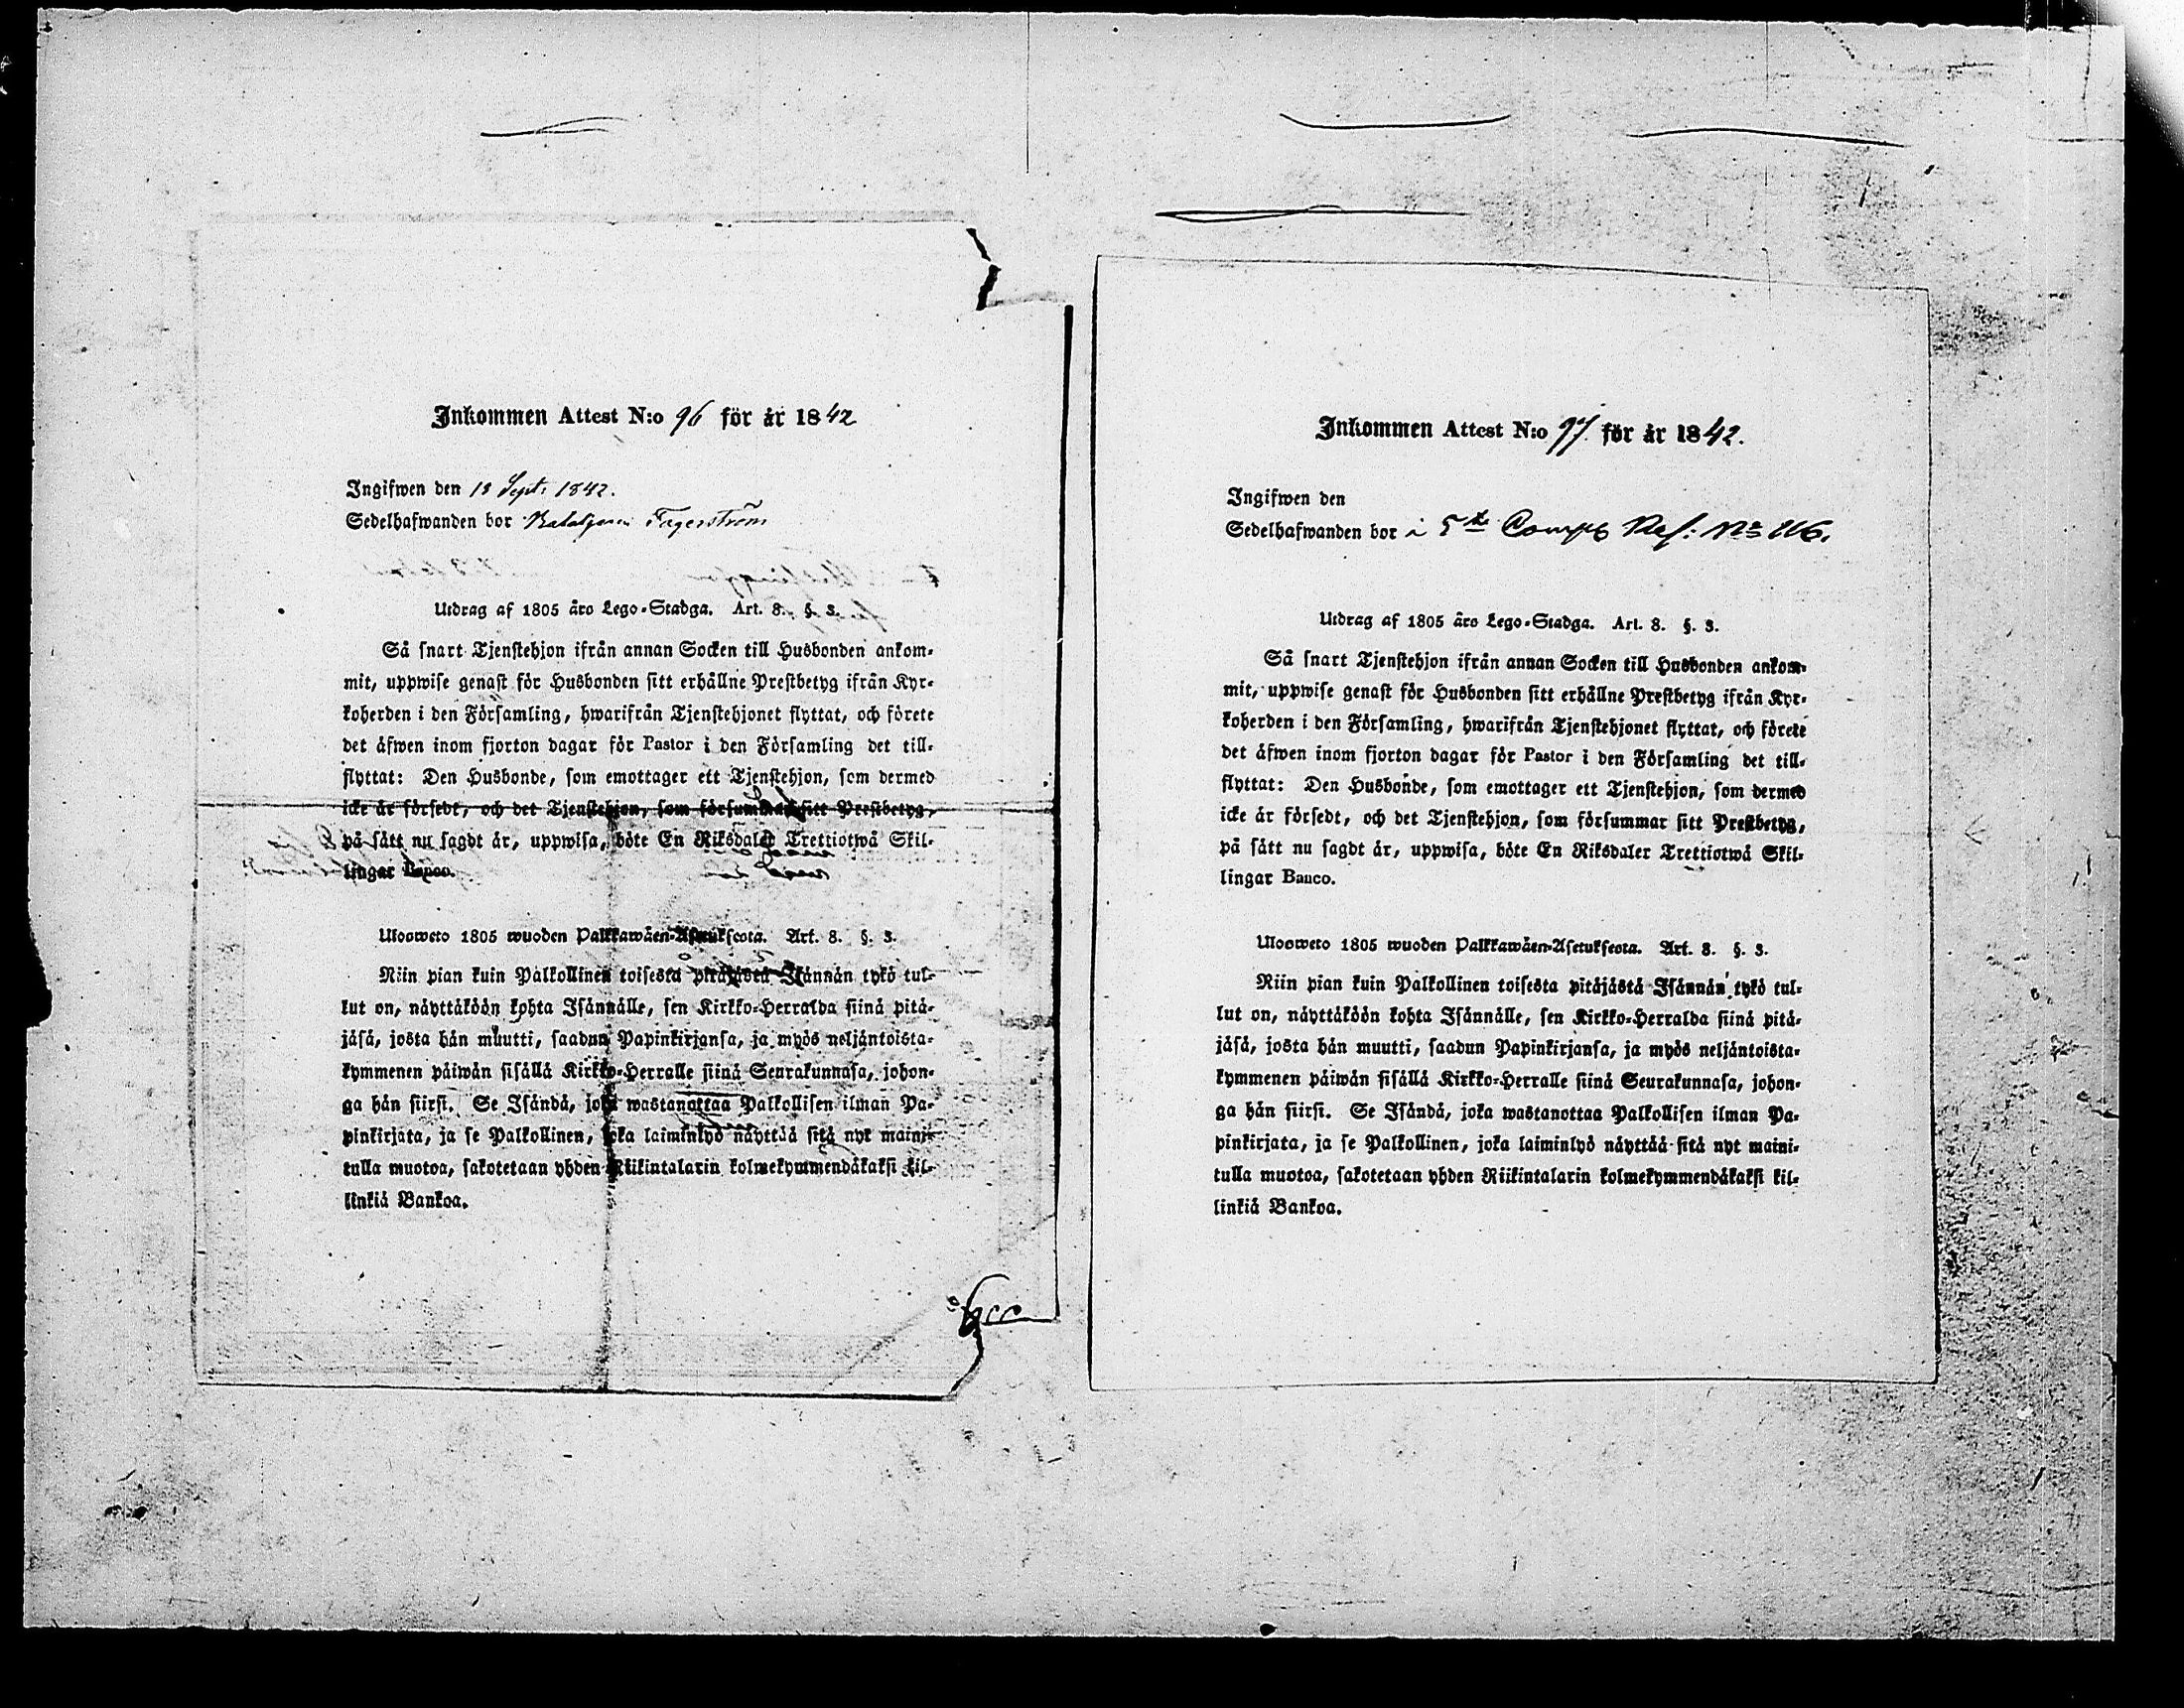 Inkommen Attest N:o 96 för år 1842
Ingifwen den 18 Sept. 1842.
Sedelhafwanden bor Fagerström
Utdrag af 1805 års Lego-Stadga. Art. 8. §. 3.
Så snart Tjenstehjon ifrån annan Socken till Husbonden ankom-
mit, uppwise genast för Husbonden sitt erhållne Prestbetyg ifrån Kyr-
koherden i den Församling, hwarifrån Tjenstehjonet flyttat, och förete
det äfwen inom fjorton dagar för Pastor i den Församling det till-
flyttat: Den Husbonde, som emottager ett Tjenstehjon, som dermed
icke är försedt, och det Tjenstehjon, som försummar sitt Prestbetyg,
på sätt nu sagdt är, uppwisa, böte En Riksdaler Trettiotwå Skil-
lingar Banco.
Ulosweto 1805 wuoden Palkkawäen-Asetuksesta. Art. 8. §. 3.
Niin pian kuin Palkollinen toisesta pitäjästä Isännän tykö tul-
lut on, näyttäköön kohta Isännälle, sen Kirkko-Herralda siinä pitä-
jäsä, josta hän muutti, saadun Papinkirjansa, ja myös neljäntoista-
kymmenen päiwän sisällä Kirkko-Herralle siinä Seurakunnasa, johon-
ga hän siirsi. Se Isändä, joka wastanottaa Palkollisen ilman Pa-
pinkirjata, ja se Palkollinen, joka laiminlyö näyttää sitä nyt maini-
tulla muotoa, sakotetaan yhden Riikintalarin kolmekymmendäkaksi kil-
linkiä Bankoa.
Inkommen Attest N:o 97 för år 1842.
Ingifwen den
Sedelhafwanden bor i 5te Comp
Utdrag af 1805 års Lego-Stadga. Art. 8. §. 3.
Så snart Tjenstehjon ifrån annan Socken till Husbonden ankom-
mit, uppwise genast för Husbonden sitt erhållne Prestbetyg ifrån Kyr-
koherden i den Församling, hwarifrån Tjenstehjonet flyttat, och förete
det äfwen inom fjorton dagar för Pastor i den Församling det till-
flyttat: Den Husbonde, som emottager ett Tjenstehjon, som dermed
icke är försedt, och det Tjenstehjon, som försummar sitt Prestbetyg,
på sätt nu sagdt är, uppwisa, böte En Riksdaler Trettiotwå Skil-
lingar Banco.
Ulosweto 1805 wuoden Palkkawäen-Asetuksesta. Art. 8. §. 3.
Niin pian kuin Palkollinen toisesta pitäjästä Isännän tykö tul-
lut on, näyttäköön kohta Isännälle, sen Kirkko-Herralda siinä pitä-
jäsä, josta hän muutti, saadun Papinkirjansa, ja myös neljäntoista-
kymmenen päiwän sisällä Kirkko-Herralle siinä Seurakunnasa, johon-
ga hän siirsi. Se Isändä, joka wastanottaa Palkollisen ilman Pa-
pinkirjata, ja se Palkollinen, joka laiminlyö näyttää sitä nyt maini-
tulla muotoa, sakotetaan yhden Riikintalarin kolmekymmendäkaksi kil-
linkiä Bankoa.